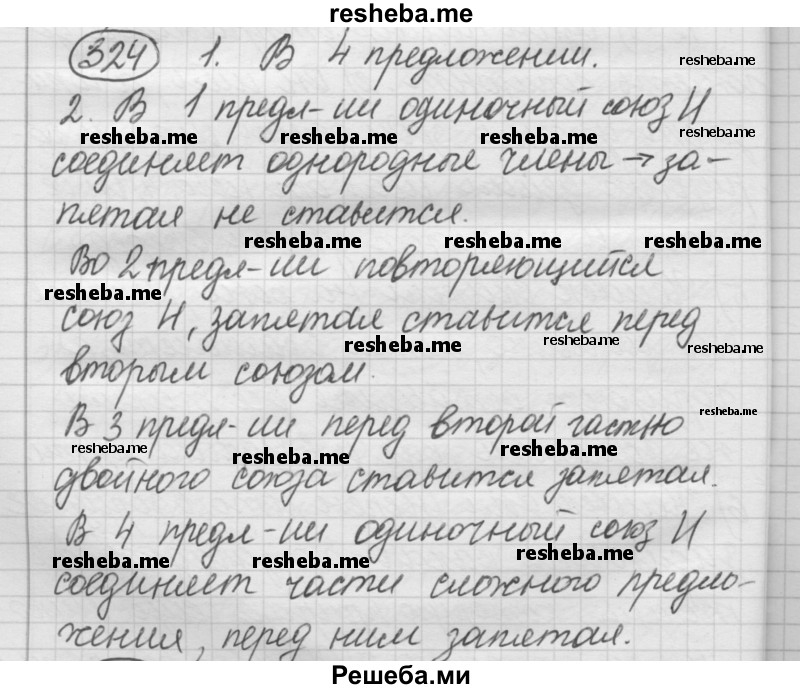 resheba.me
324 1. В 4 предложении. resheba.me
2. В 1 предл-ии одиночный союз И
resheba.me resheba.me resheba.me resheba.me
соединяет однородные члены → за-
пятая не ставится.
resheba.me resheba.me resheba.me
Во 2 предл-ии повторяющийся
resheba.me
союз И, запятая ставится перед
resheba.me resheba.me resheba.me
вторым союзом.
В 3 предл-ии перед второй частью resheba.me
resheba.me resheba.me resheba.me
двойного союза ставится запятая.
В 4 предл-ии одиночный союз И
resheba.me resheba.me resheba.me
соединяет части сложного предло-
жения, перед ним запятая.
Решеба.ми